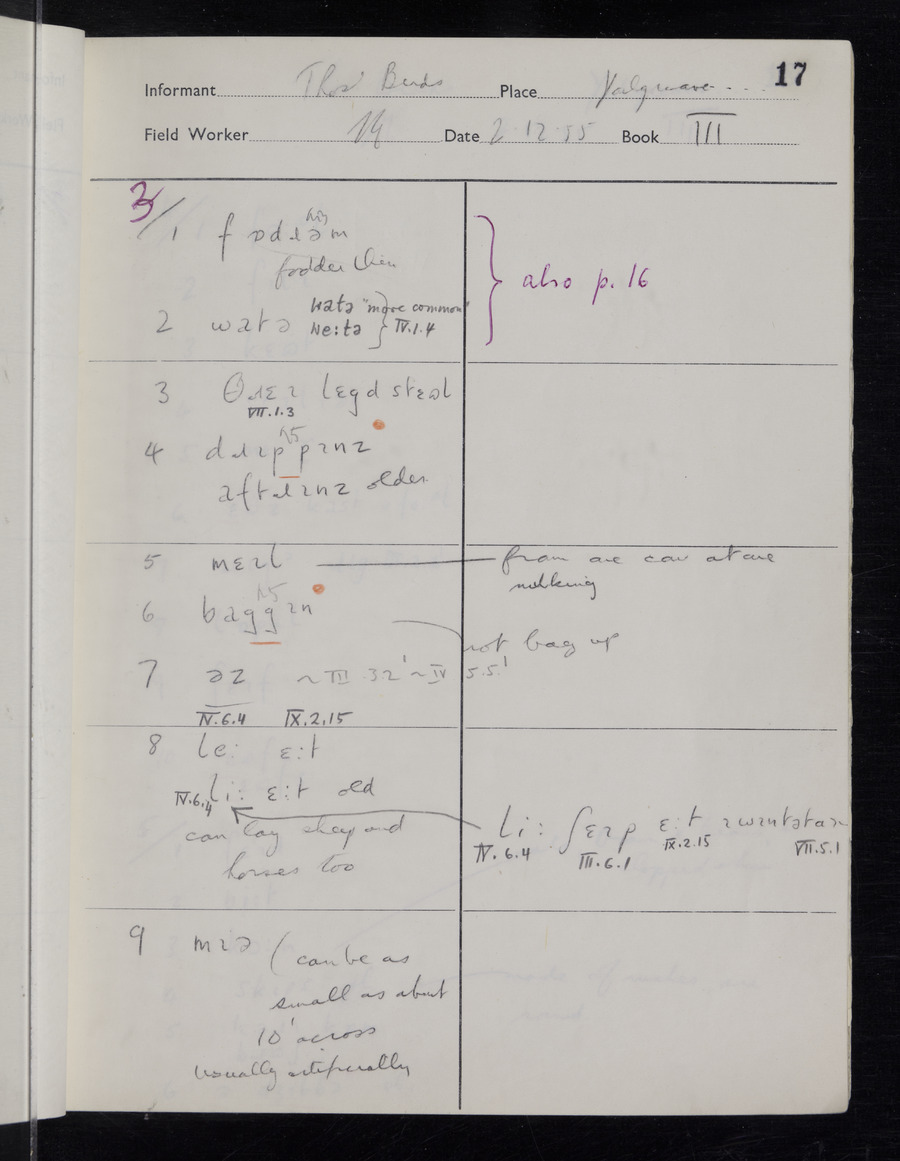 17
Informant Thos' Place
Field Worker Date 2.12.55 Book III
3/
1 fɒdɹəm
fodder them
also p. 16
2 watə watə "more common"
we:tə } IV.1.4
3 θɹɛɪ lɛgd
VII.1.3
4 dɹɪppɪnz
aftɹɪnz older
5 mɛɪl from one cow at one
milking
6 baggɪn
not bag up
7 əz ~ III 3.2' ~ IV 5.5.'
IV.6.4 IX.2.15
8 le: ɛ:t
IV.6.4 li: ɛ:t old
can say sheep and
horses too
li: ʃɛɪp ɛ:t
IV.6.4 III.6.1 IX.2.15 VII.5.1
9 mɪə (can be as
small as about
10' across
usually artificially